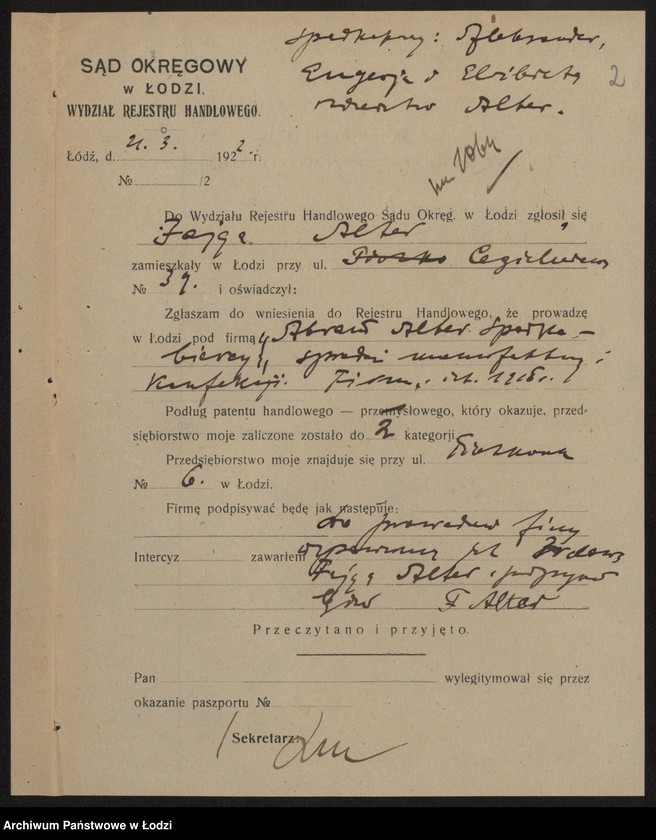 Aleksander,
Eugenja i Elżbieta
Alter.
2
SĄD OKRĘGOWY
w ŁODZI.
WYDZIAŁ REJESTRU HANDLOWEGO.
Łódź, d. 21. 3. 1922. r.
№ /2
Do Wydziału Rejestru Handlowego Sądu Okręg. w Łodzi zgłosił się
Fajga Alter
zamieszkały w Łodzi przy ul. Cegielniana
№ 37. i oświadczył:
Zgłaszam do wniesienia do Rejestru Handlowego, że prowadzę
w Łodzi pod firmą „Abram Alter Spadko-
biercy", sprzedaż manufaktury i
konfekcji. Firma
Podług patentu handlowego — przemysłowego, który okazuje, przed-
siębiorstwo moje zaliczone zostało do 2 kategorji
Przedsiębiorstwo moje znajduje się przy ul.
№ 6. w Łodzi.
Firmę podpisywać będę jak następuje:
do prowadzenia firmy
Intercyz zawarłem
Fajga Alter i
F Alter
Przeczytano i przyjęto.
Pan wylegitymował się przez
okazanie paszportu №
Sekretarz:
Archiwum Państwowe w Łodzi